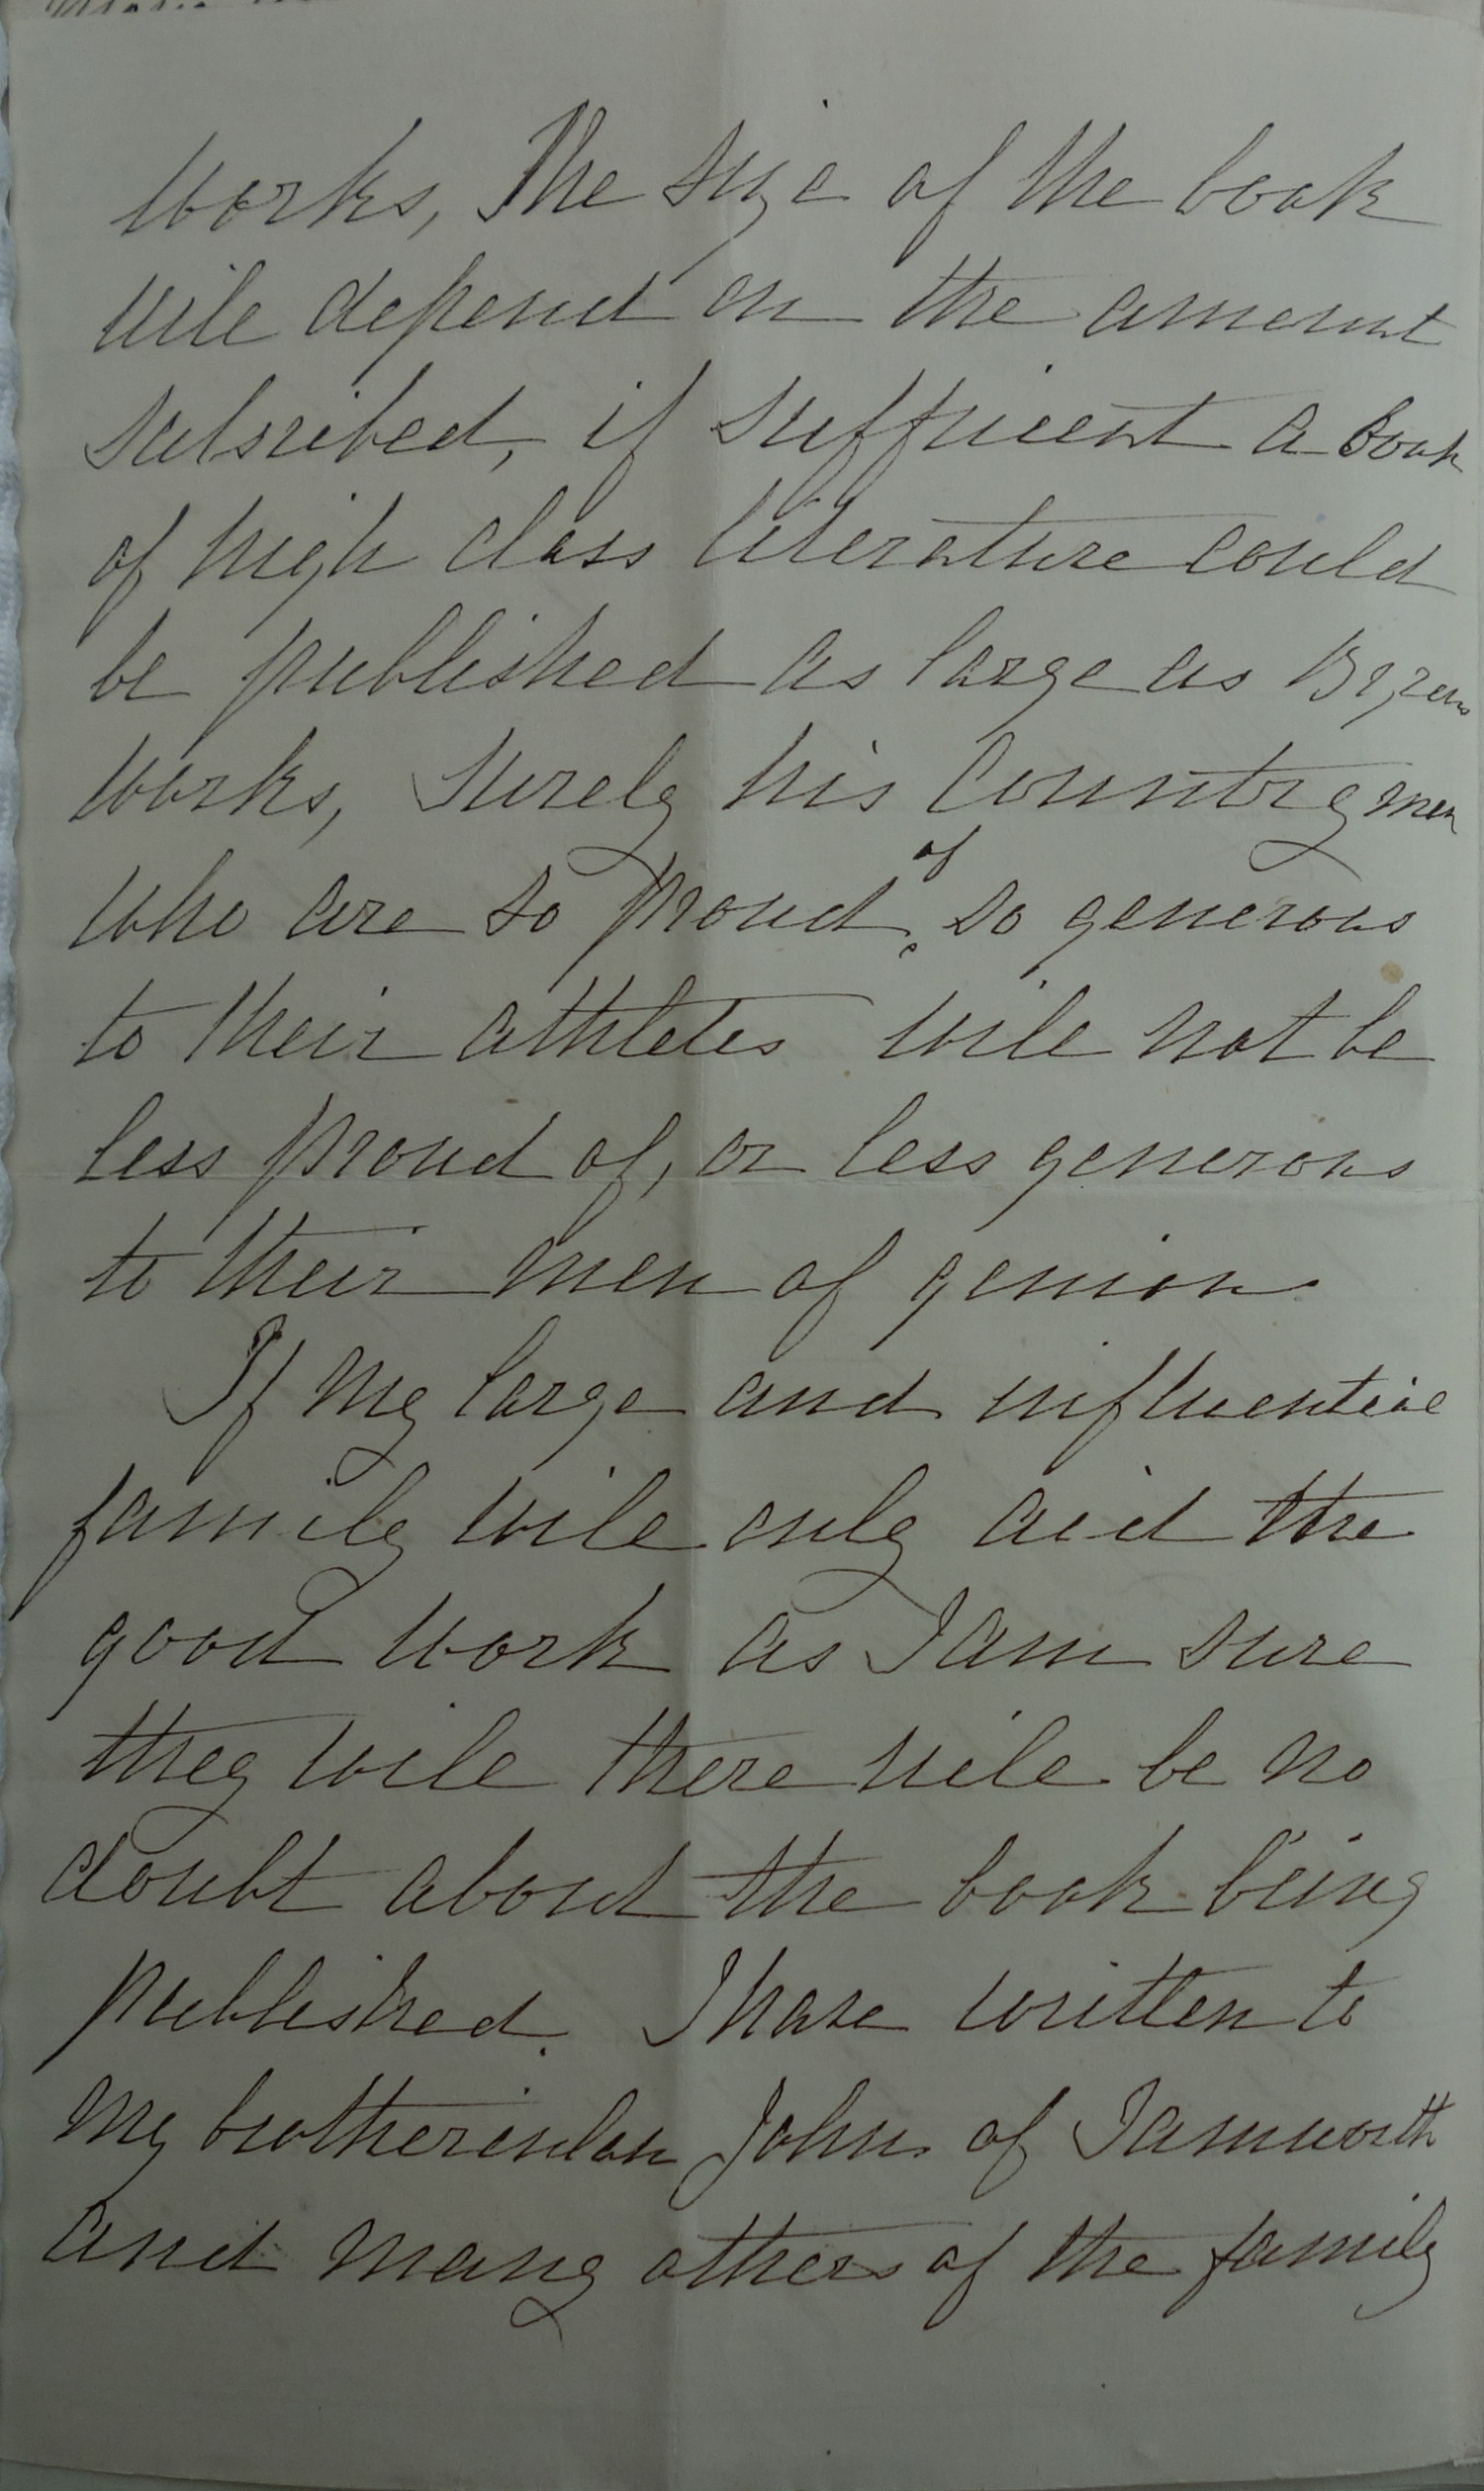 works, The size of the book
will depend on the amount
subsribed, if sufficient a book
of high class literature could
be published as large as Byrons
works, surely his Countrymen
who are so proud of, so generous
to their athletes will not be
less proud of, or less generous
to their men of genious
If my large and influential
family will only aid the
good work as I am sure
they will there will be no
doubt about the book being
published. I have written to
my brotherinlaw John of Tamworth
and many others of the family